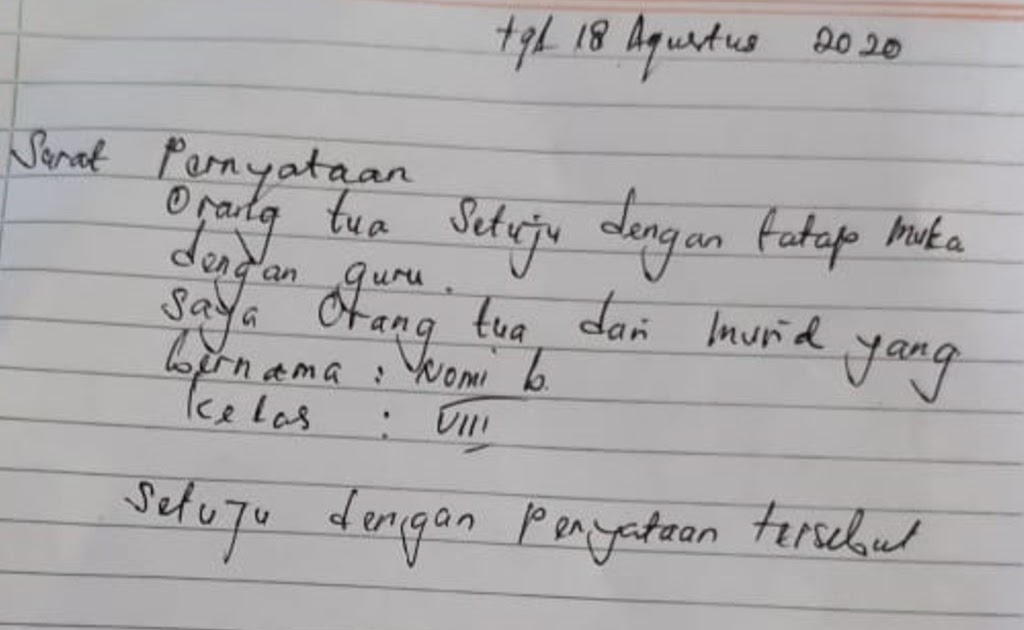 tgl 18 Agustus 2020
Surat Pernyataan
Orang tua Setuju dengan tatap muka
dengan guru.
saya Orang tua dari murid yang
bernama : Nomi b.
kelas : VIII
Setuju dengan penyataan tersebut